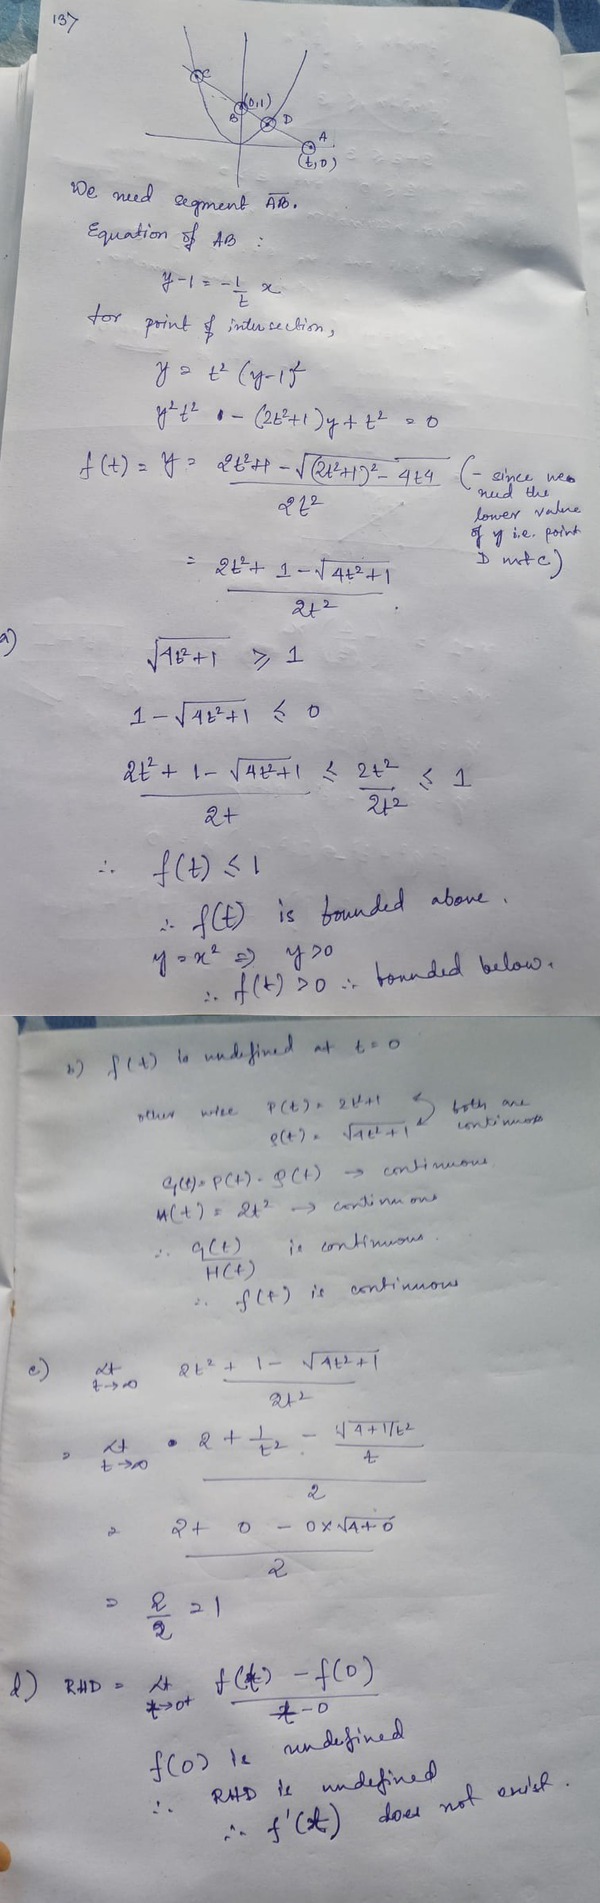 137
C
B
(0,1)
D
A
(t,0)
We need segment AB.
Equation of AB :
y-1 = -1/t x
for point of intersection,
y = t² (y-1)²
y²t² - (2t²+1)y + t² = 0
f(t) = y = (2t²+1 - √((2t²+1)² - 4t4)) / 2t²
(- since we need the lower value of y i.e. point D not C)
= (2t² + 1 - √(4t²+1)) / 2t²
a)
√(4t²+1) ⩾ 1
1 - √(4t²+1) ≤ 0
(2t² + 1 - √(4t²+1)) / 2t ≤ 2t²/2t² ≤ 1
∴ f(t) ≤ 1
∴ f(t) is bounded above.
y = x² ⇒ y>0
∴ f(t) > 0 ∴ bounded below.
b) f(t) is undefined at t = 0
other wise P(t) = 2t²+1
Q(t) = √(4t²+1)
both are continuous
G(t) = P(t) - Q(t) → continuous
H(t) = 2t² → continuous
∴ G(t)/H(t) is continuous.
∴ f(t) is continuous
c) Lt t→∞ (2t² + 1 - √(4t²+1)) / 2t²
= Lt t→∞ (2 + 1/t² - √(4+1/t²)/t) / 2
= (2 + 0 - 0×√(4+0)) / 2
= 2/2 = 1
d) RHD = Lt t→0+ (f(t) - f(0)) / (t-0)
f(0) is undefined
∴ RHD is undefined
∴ f'(t) does not exist.